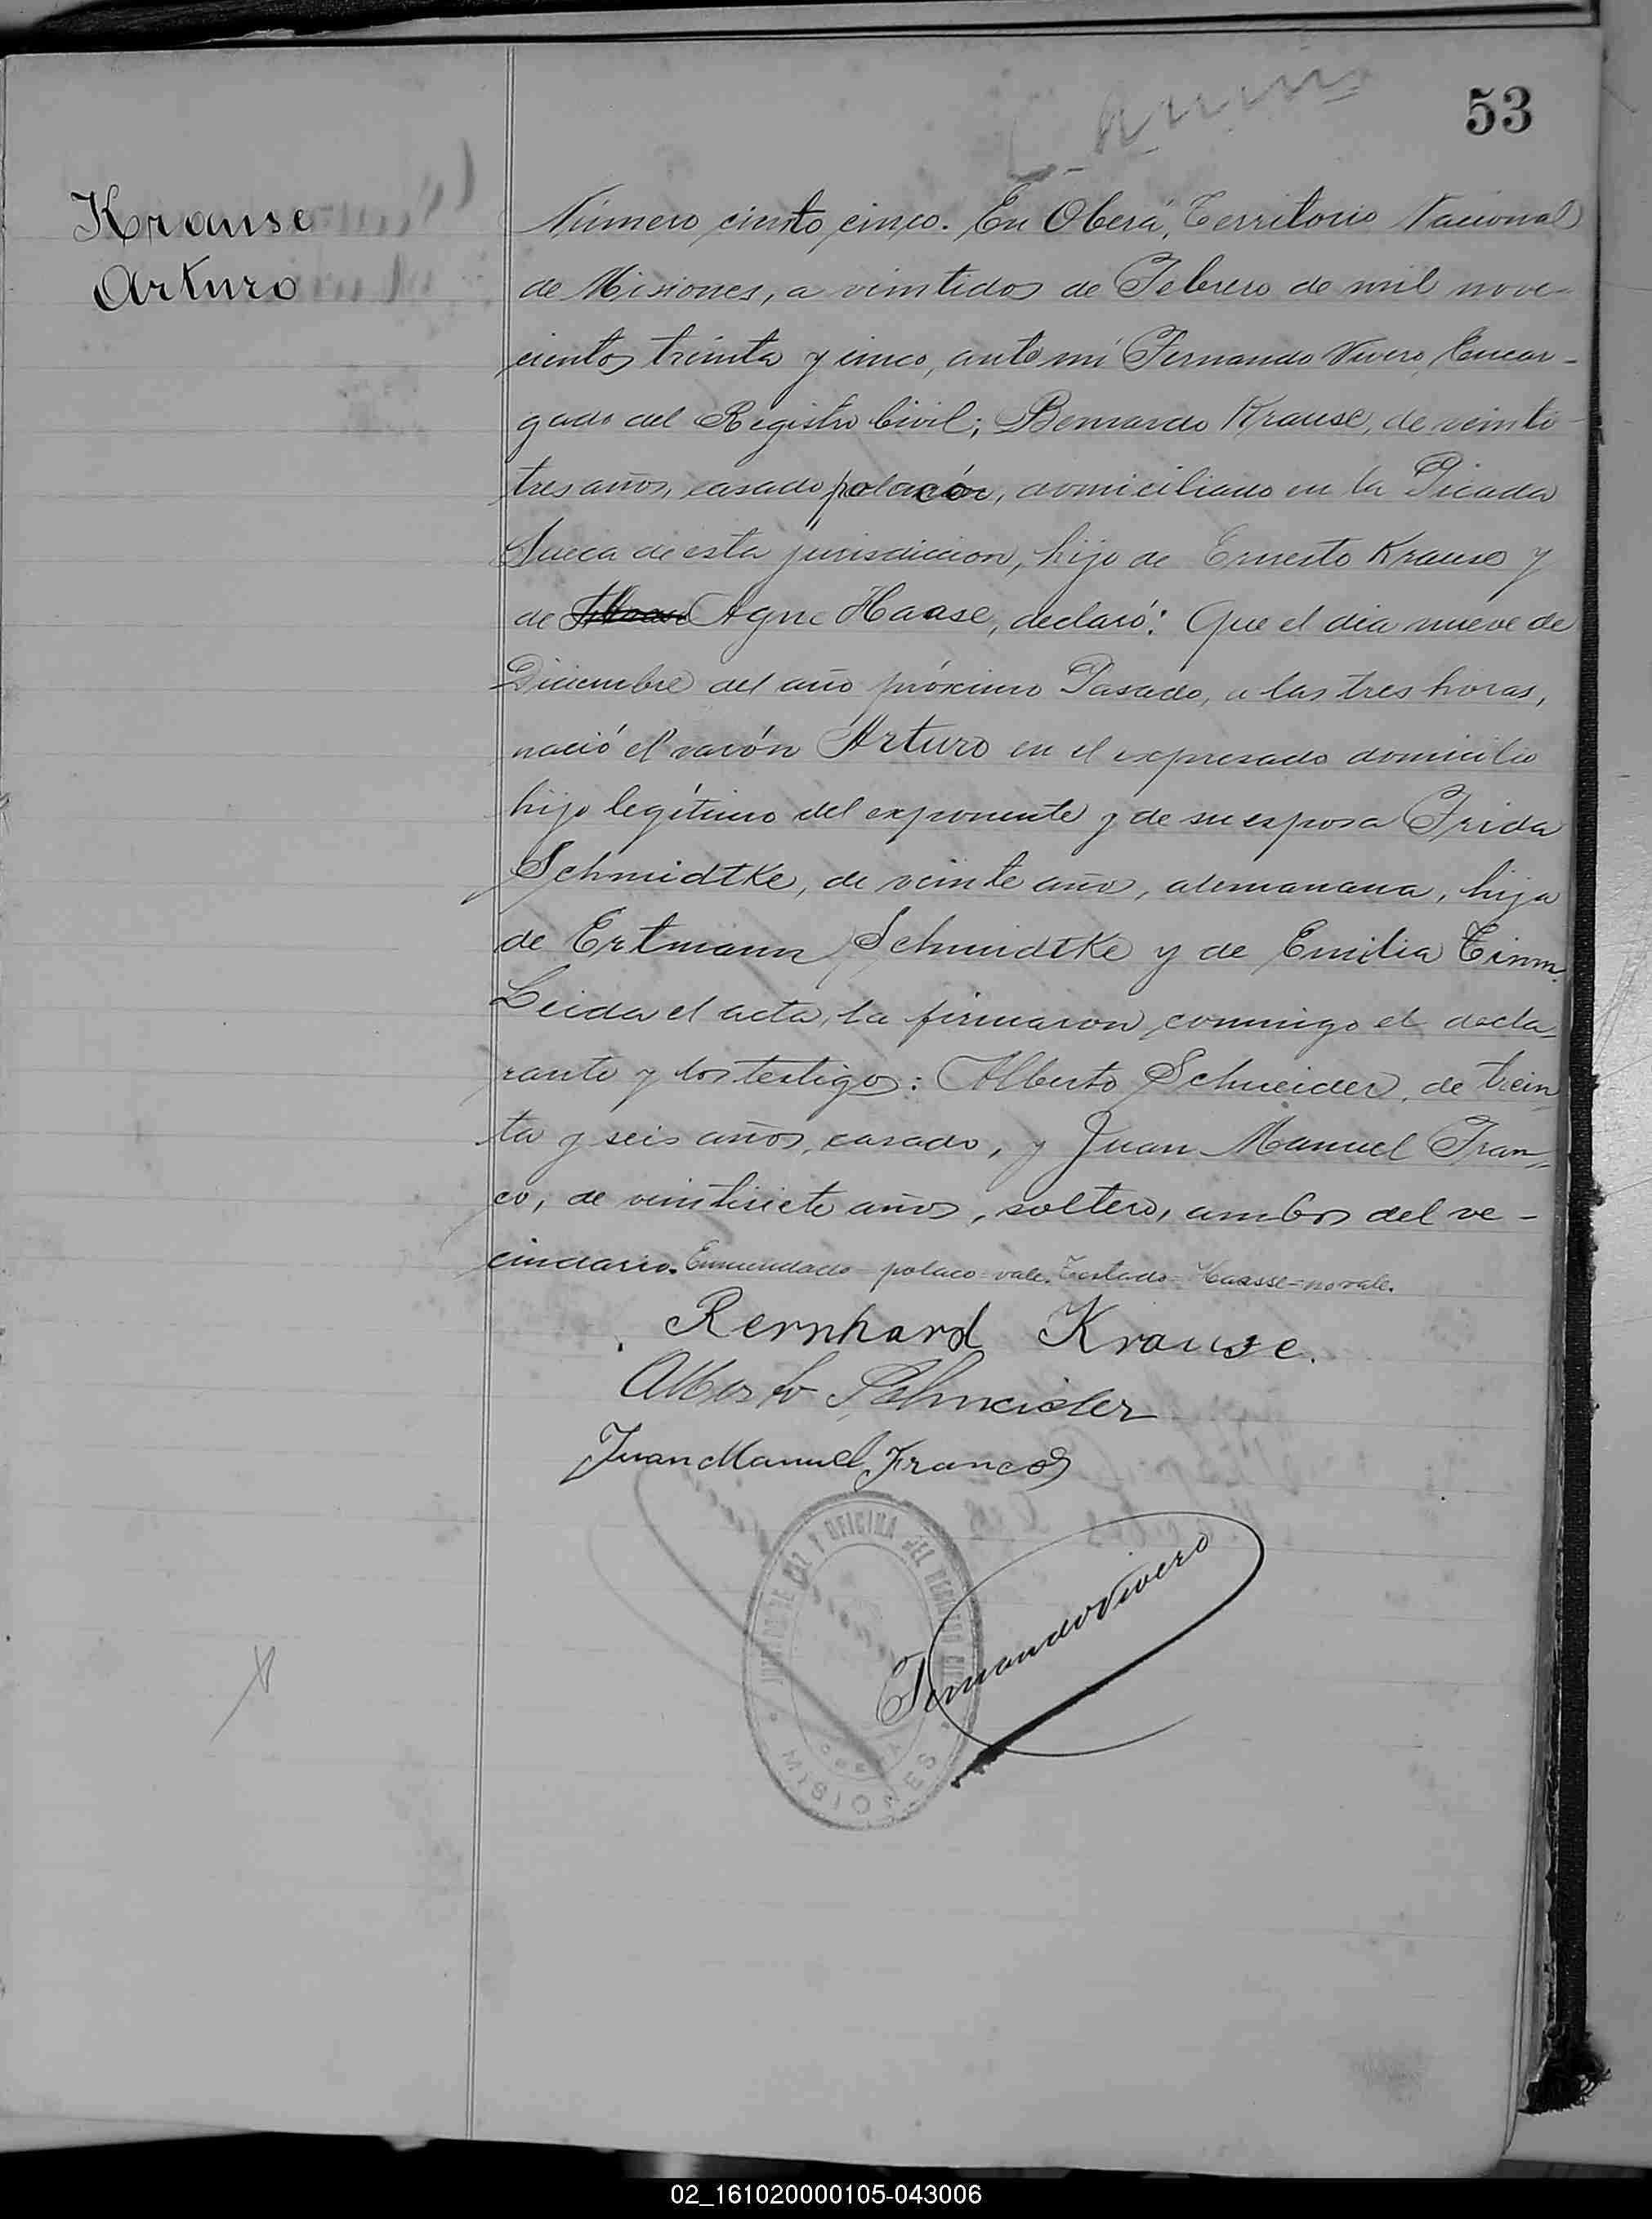 53
Krause
Arturo
Número ciento cinco. En Oberá, Territorio Nacional
de Misiones, a veintidos de Febrero de mil nove-
cientos treinta y cinco, ante mí Fernando Vivero, Encar-
gado del Registro Civil; Bernardo Krause, de veinti-
tres años, casado, polaco, domiciliado en la Picada
Sueca de esta jurisdicción, hijo de Ernesto Krause y
de Agne Haase, declaró: Que el día nueve de
Diciembre del año próximo Pasado, a las tres horas,
nació el varón Arturo en el expresado domicilio
hijo legítimo del exponente y de su esposa Frida
Schmidtke, de veinte años, alemanana, hija
de Ertmann Schmidtke y de Emilia Timm.
Leida el acta, la firmaron conmigo el decla-
rante y los testigos: Alberto Schneider, de trein
ta y seis años, casado, y Juan Manuel Fran-
co, de veintisiete años, soltero, ambos del ve-
cindario. Enmendado = polaco = vale. Testado = Haasse = no vale.
Bernhard Krause.
Alberto Schneider
Juan Manuel Franco
JUZGADO DE PAZ Y OFICINA DEL REGISTRO CIVIL
OBERA
MISIONES
Fernando Vivero
02_161020000105-043006